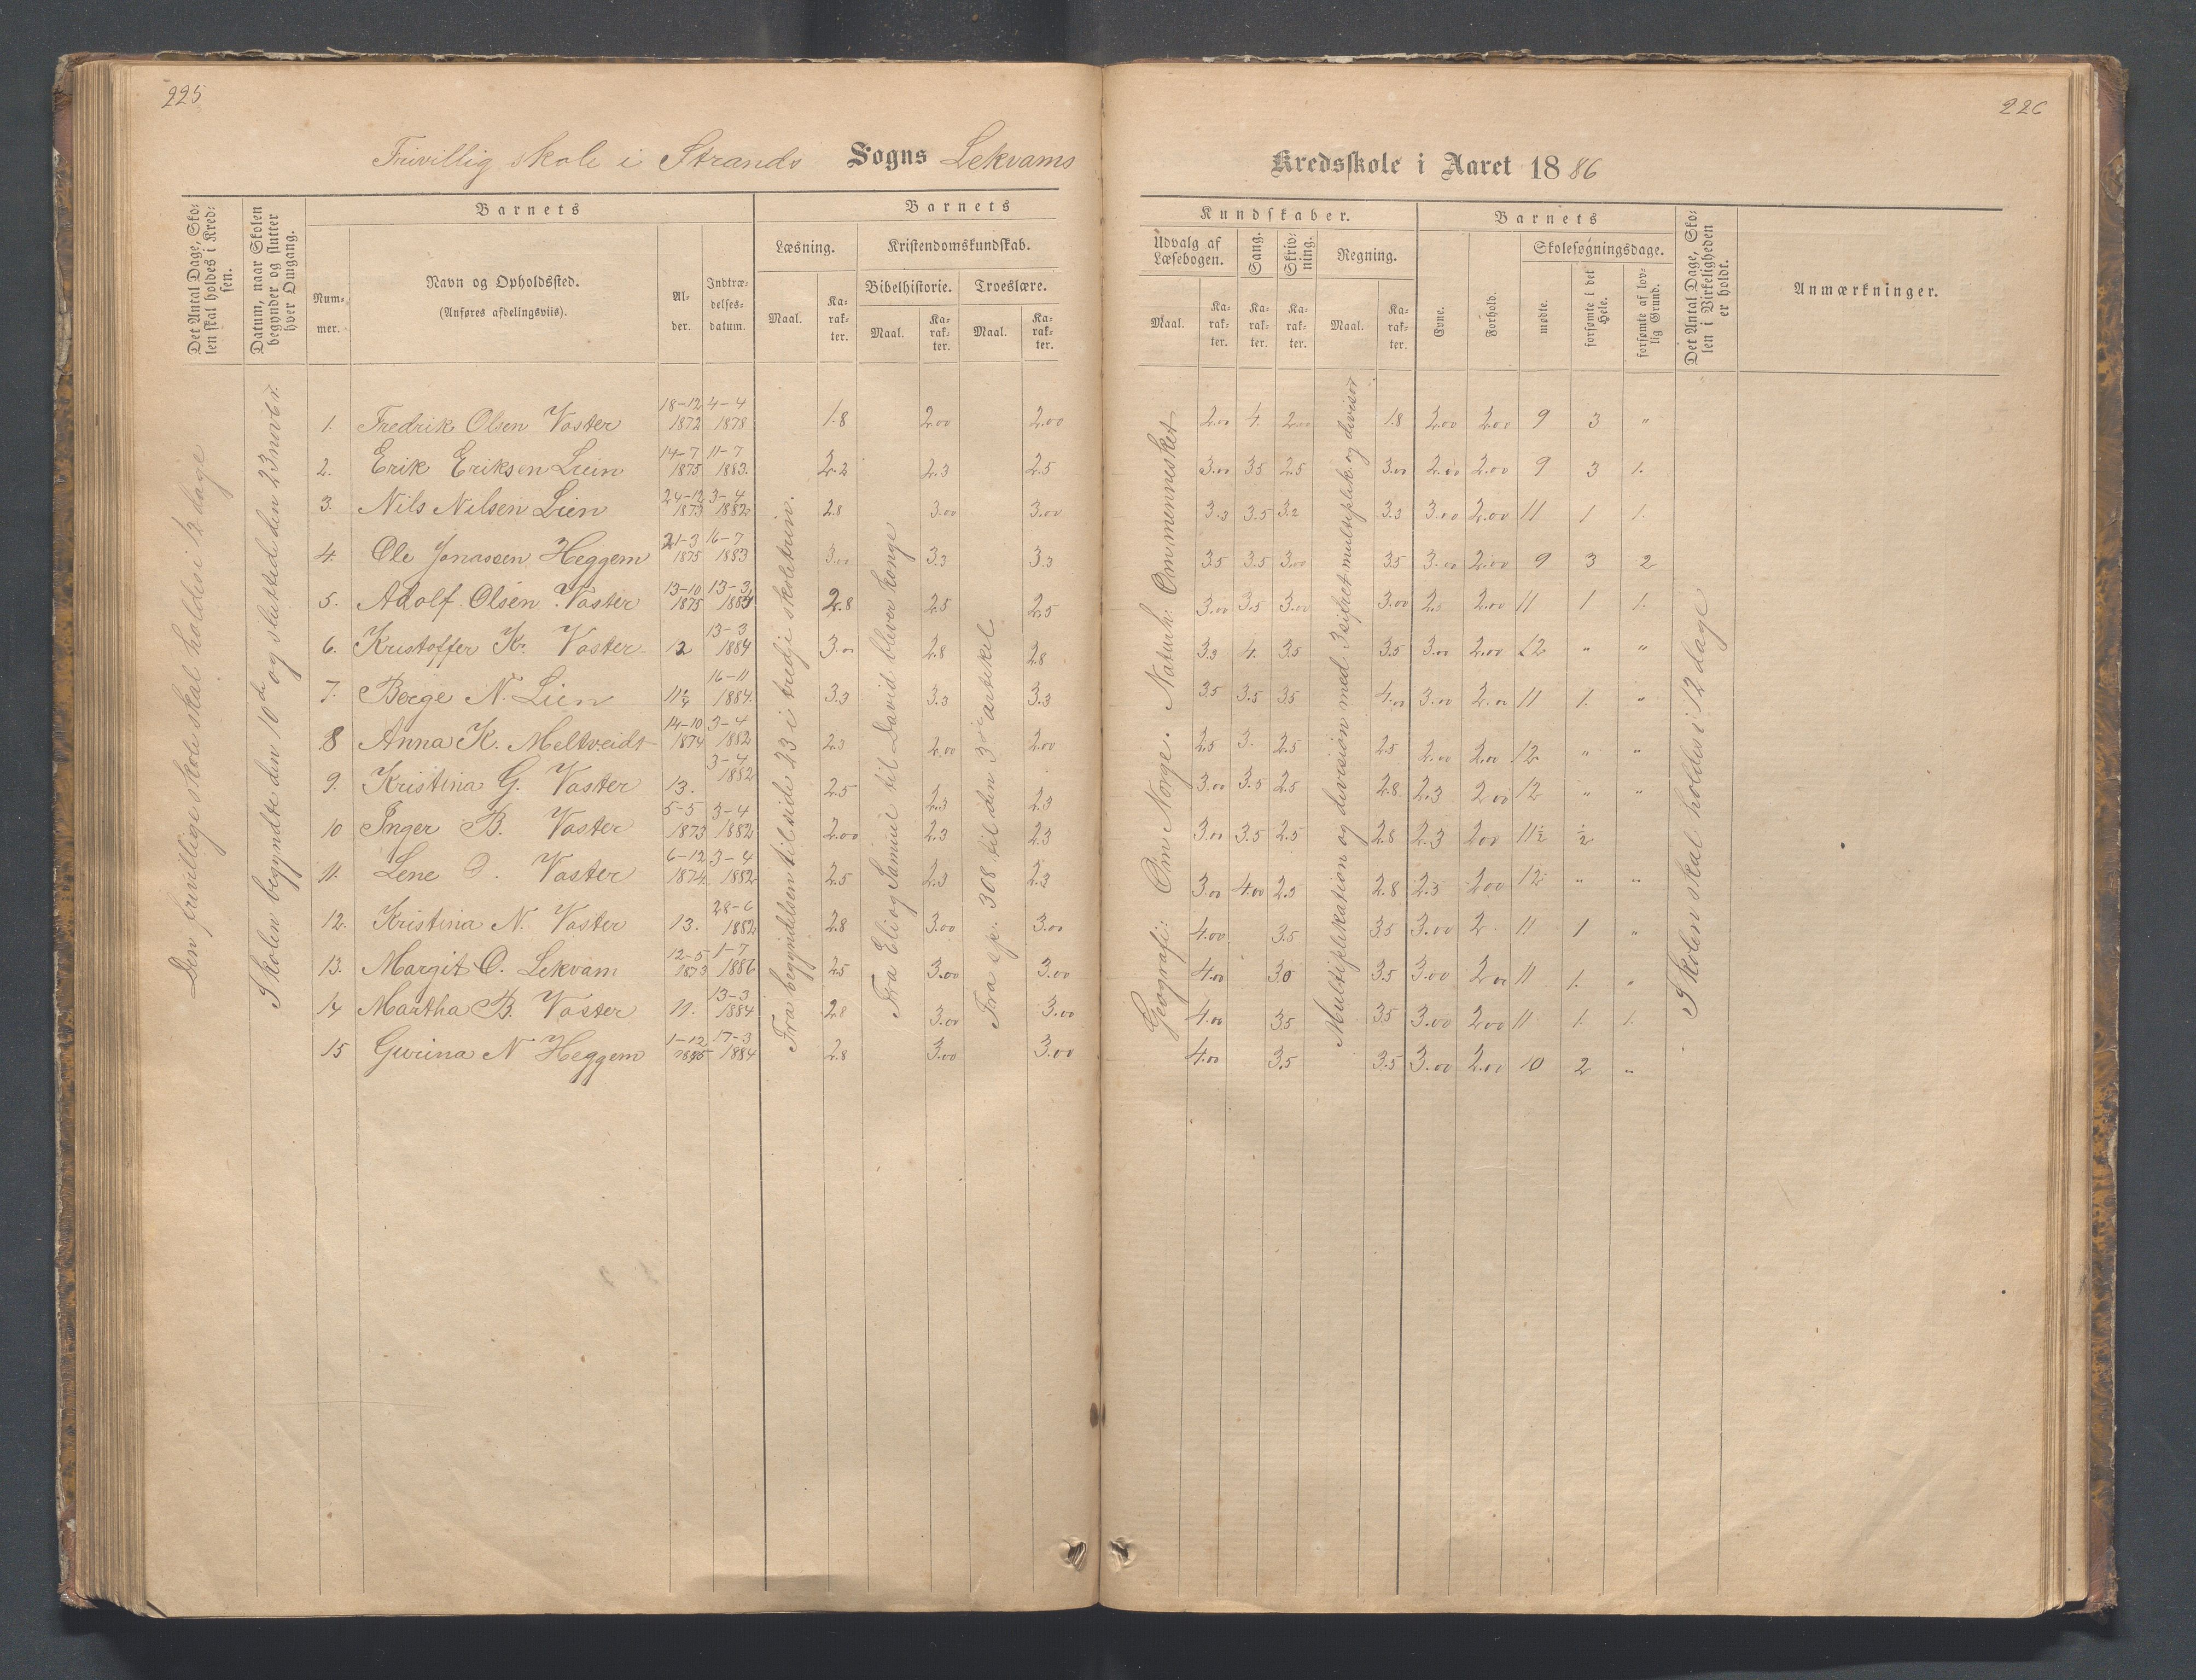 225
226
Frivillig skole i Strands Sogns Lekvams
Kredsskole i Aaret 1886
Det Antal Dage, Skolen skal holdes i Kredsen.
Datum, naar Skolen begynder og slutter hver Omgang.
Barnets
Nummer.
Navn og Opholdssted.
(Anføres afdelingsviis).
Alder.
Indtrædelsesdatum.
Barnets
Læsning.
Maal.
Karakter.
Kristendomskundskab.
Bibelhistorie.
Maal.
Karakter.
Troeslære.
Maal.
Karakter.
Kundskaber.
Udvalg af Læsebogen.
Maal.
Karakter.
Sang.
Karakter.
Skrivning.
Karakter.
Regning.
Maal.
Karakter.
Barnets
Evne.
Forhold.
Skolesøgningsdage.
mødte.
forsømte i det Hele.
forsømte af lovlig Grund.
Det Antal Dage, Skolen i Virkeligheden er holdt.
Anmærkninger.
Den frivillige skole skal holdes i 12 dage
Skolen begyndte den 10de og sluttede den 23 novbr.
Fra begyndelsen til side 23 i tredje skoletrin.
Fra Eli og Samuel til David bliver konge
Fra sp. 308 til den 3die artikel
Geografi: Om Norge. Naturh: Om mennesket
Multiplikation og division med 3 sifret multiplik. og divisor
Skolen skal holdes i 12 dage
1. Fredrik Olsen Vaster 18-12 1872 4-4 1878 1.8 2.00 2.00 2.00 4. 2.00 1.8 2.00 2.00 9 3 "
2. Erik Eriksen Lien 14-7 1875 11-7 1883. 2.2 2.3 2.5 3.00 3.5 2.5 3.00 2.00 2.00 9 3 1.
3. Nils Nilsen Lien 24-12 1873 3-4 1882 2.8 3.00 3.00 3.3 3.5 3.2 3.3 3.00 2.00 11 1 1.
4. Ole Jonassen Heggem 21-3 1875 16-7 1883 3.00 3.3 3.3 3.5 3.5 3.00 3.5 3.00 2.00 9 3 2
5. Adolf Olsen Vaster 13-10 1875 13-3 1884 2.8 2.5 2.5 3.00 3.5 3.00 3.00 2.5 2.00 11 1 1.
6. Kristoffer Kr. Vaster 12 13-3 1884 3.00 2.8 2.8 3.3 4. 3.5 3.5 3.00 2.00 12 " "
7. Berge N. Lien 11 16-11 1884. 3.3 3.3 3.3 3.5 3.5 3.5 4.00 3.00 2.00 11 1. "
8 Anna K. Meltveidt 14-10 1874 3-4 1882 2.3 2.00 2.00 2.5 3. 2.5 2.5 2.00 2.00 12. " "
9. Kristina G. Vaster 13. 3-4 1882 2.5 2.3 2.3 3.00 3.5 2.5 2.8 2.3 2.00 12 " "
10 Inger B. Vaster 5-5 1873 3-4 1882 2.00 2.3 2.3 3.00 3.5 2.5 2.8 2.3 2.00 11½ ½
11. Lene O. Vaster 6-12 1874 3-4 1882 2.5 2.3 2.3 3.00 4.00 2.5 2.8 2.3 2.00 12 " "
12. Kristina N. Vaster 13. 28-6 1882 2.8 3.00 3.00 4.00 3.5 3.5 3.00 2. 11 1 "
13. Margit O. Lekvam 12-5 1873 1-7 1886 2.5 3.00 3.00 4.00 3.0 3.5 3.00 2.00 11 1. "
14 Martha B. Vaster 11. 13-3 1884 2.8 3.00 3.00 4.00 3.5 3.5 3.00 2.00 11 1. 1.
15 Gurina N Heggem 1-12 17-3 1884 2.8 3.00 3.00 4.00 3.5 3.5 3.00 2.00 10 2 "